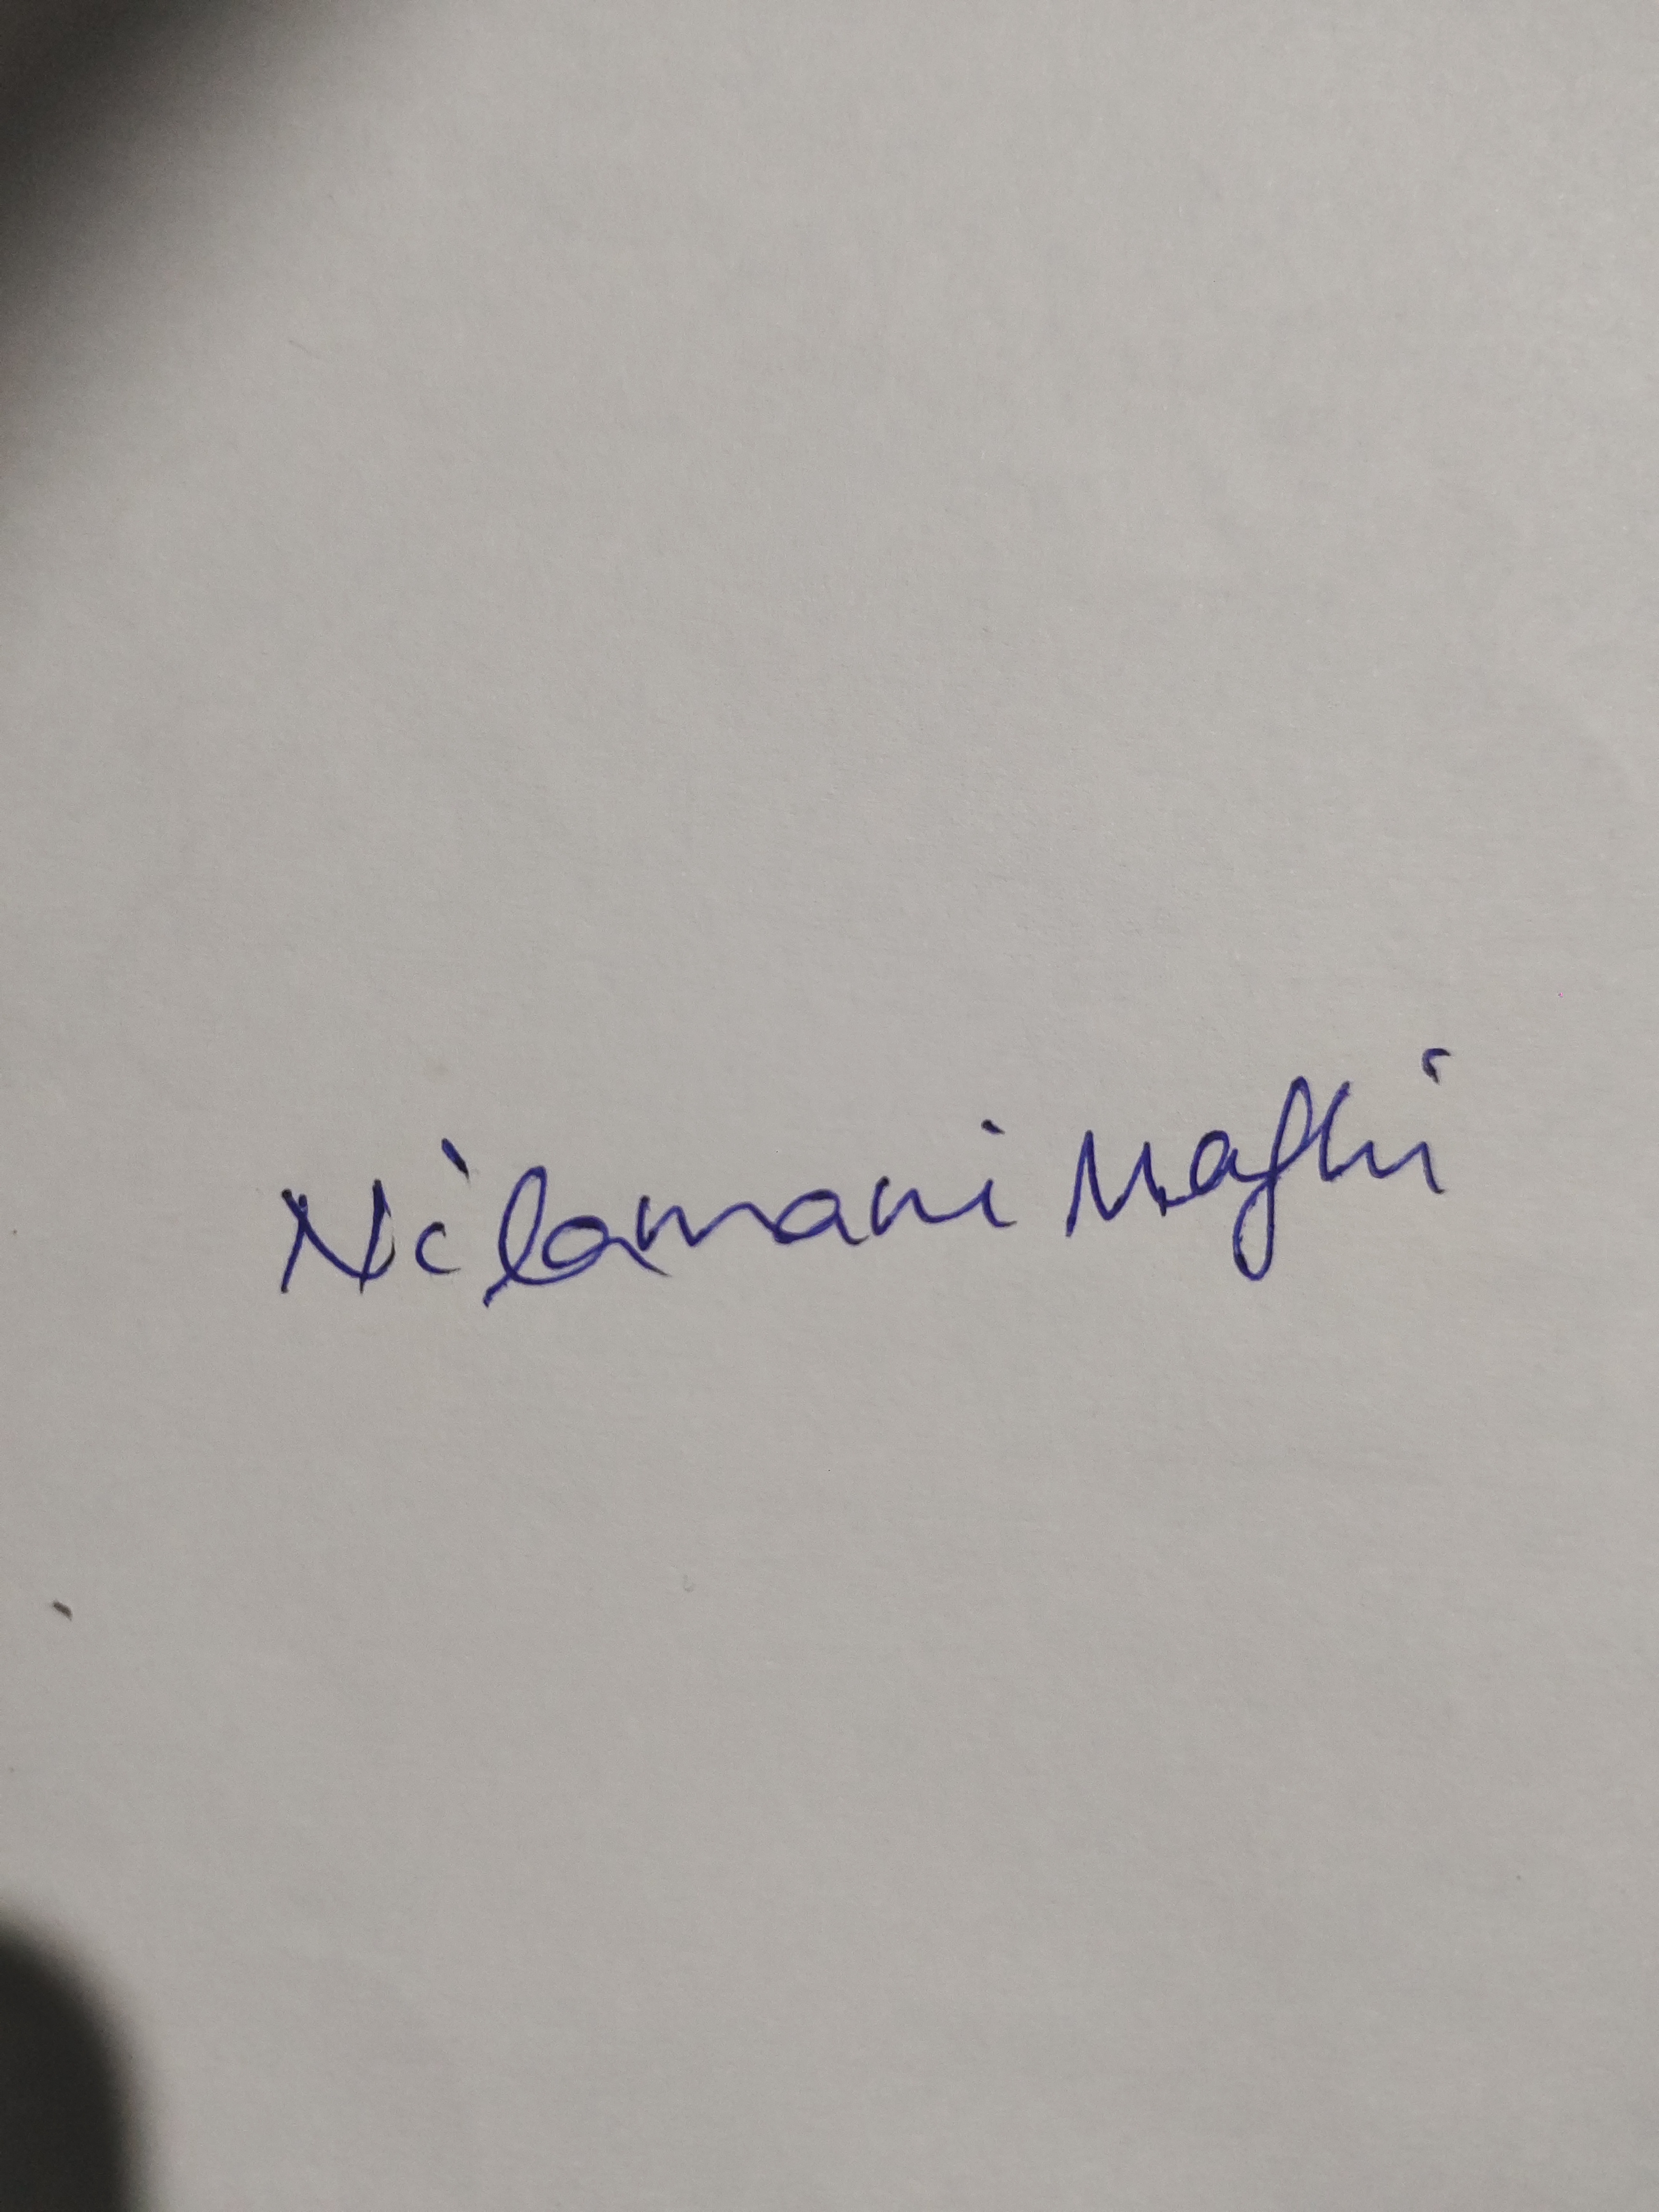 Nilamani Maghi